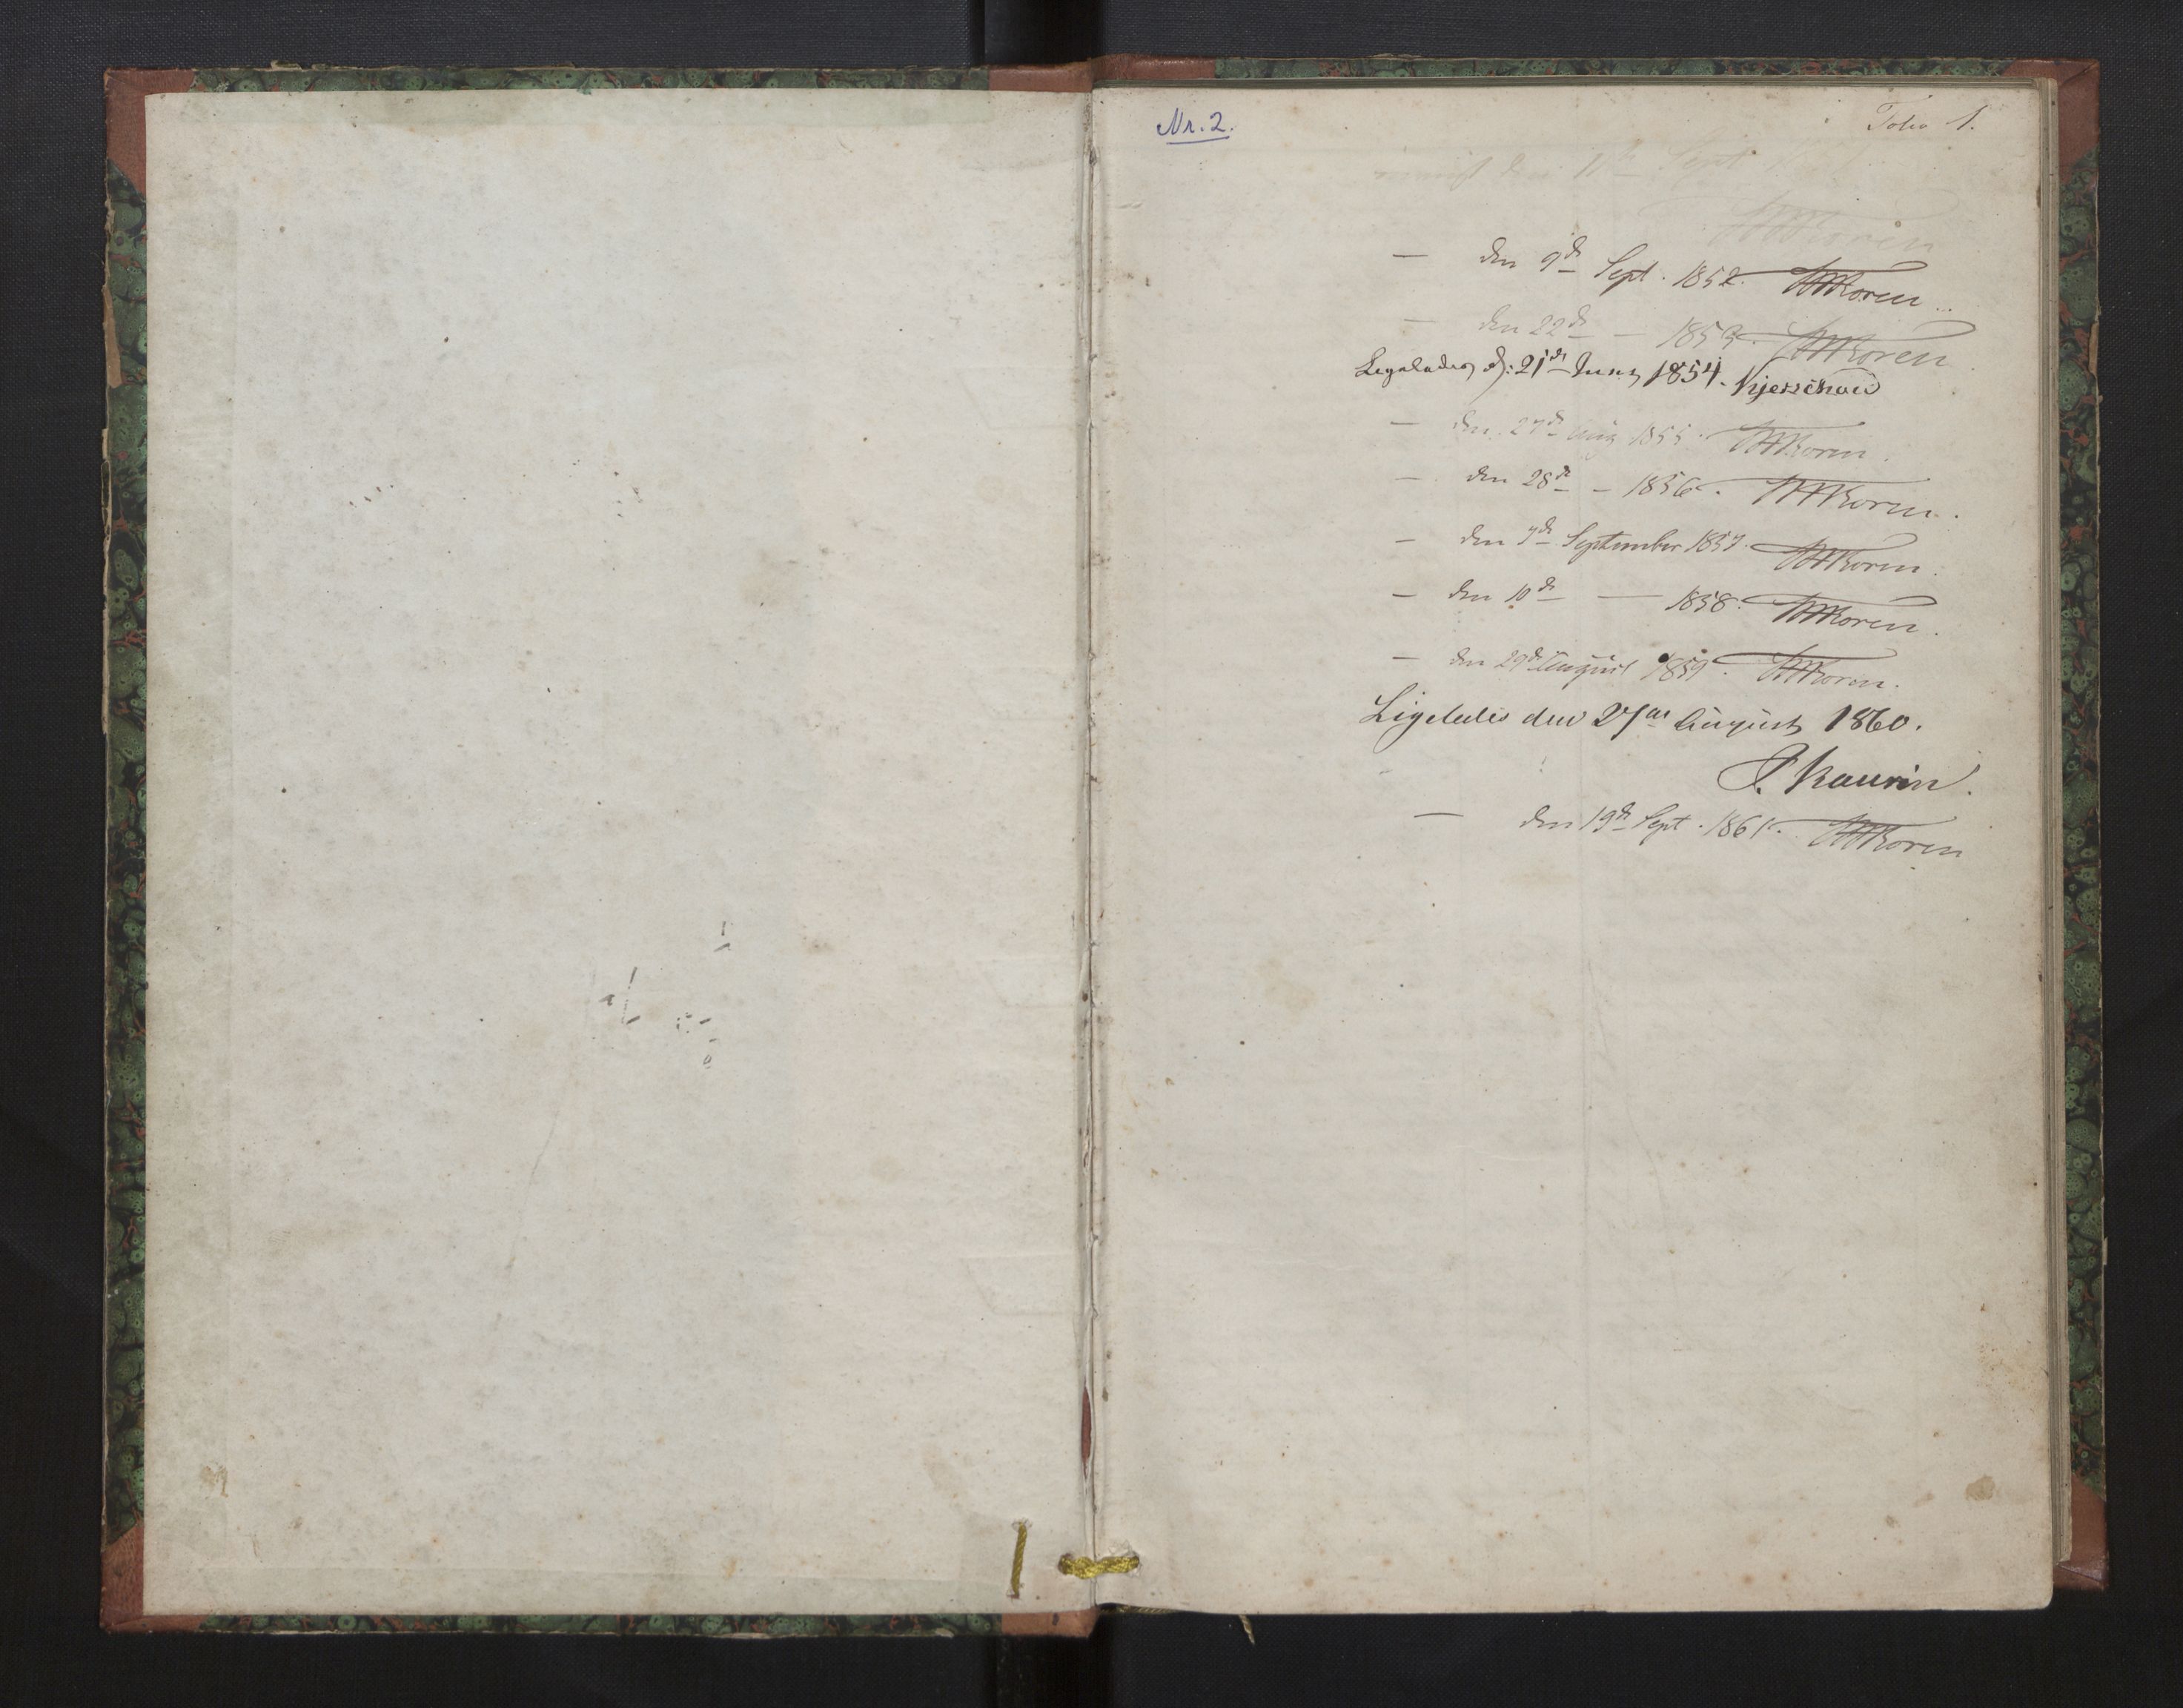 Nr. 2.
Folio 1.
den 11te Sept
WMKoren
— den 9de Sept. 1852. WMKoren
— den 22de — 1853. WMKoren
Ligeledes d: 21de Juny 1854. Kjerschow
— den 27de Aug 1855. WMKoren.
— den 28de — 1856. WMKoren.
— den 7de September 1857. WMKoren.
— den 10de — 1858. WMKoren.
— den 29de August 1859. WMKoren.
Ligeledes den 27de August 1860.
P. Kaurin.
— den 19de Sept. 1861. WMKoren